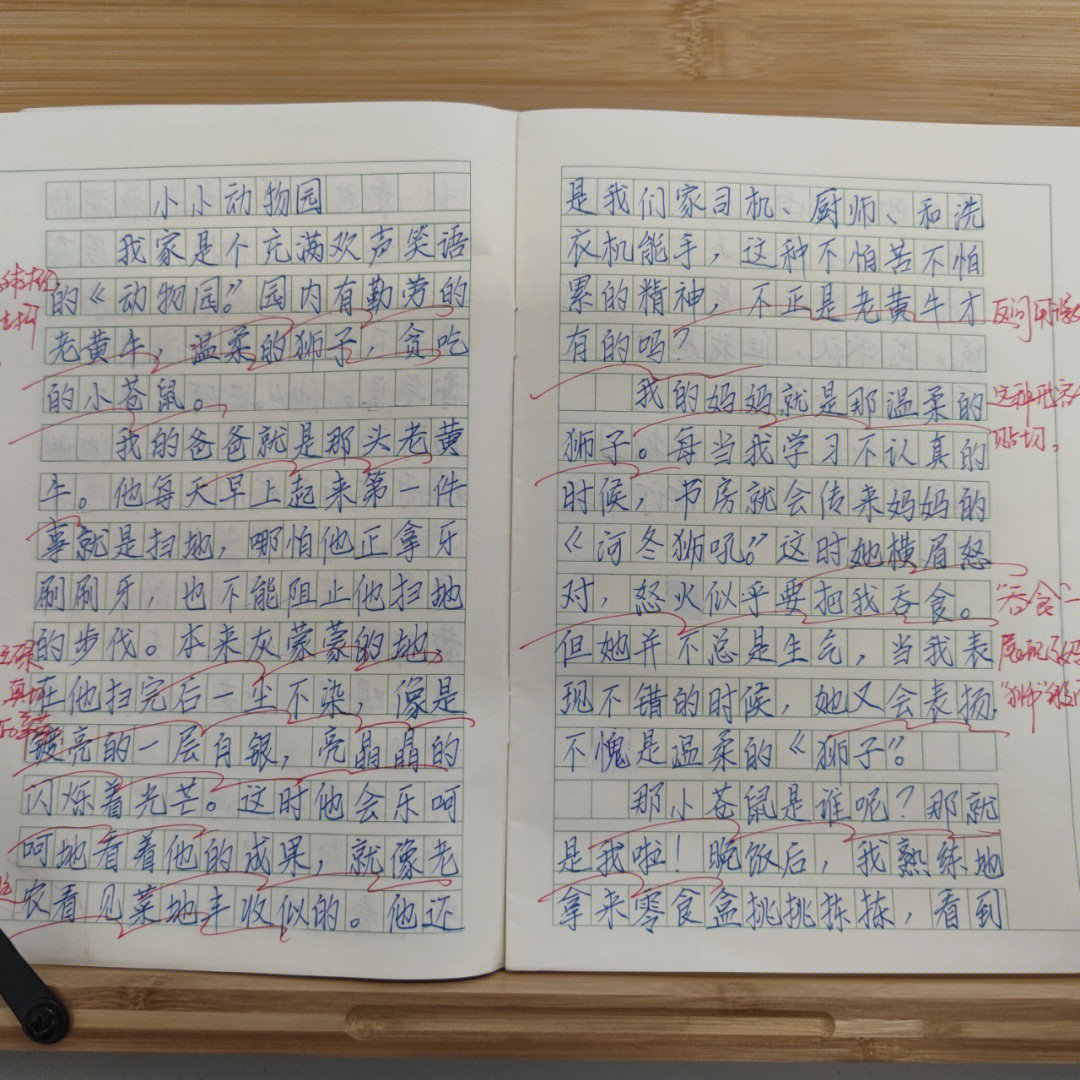 小小动物园
我家是个充满欢声笑语
的《动物园》。园内有勤劳的
老黄牛，温柔的狮子，贪吃
的小苍鼠。
我的爸爸就是那头老黄
牛。他每天早上起来第一件
事就是扫地，哪怕他正拿牙
刷刷牙，也不能阻止他扫地
的步伐。本来灰蒙蒙的地，
在他扫完后一尘不染，像是
镀亮的一层白银，亮晶晶的
闪烁着光芒。这时他会乐呵
呵地看着他的成果，就像老
农看见菜地丰收似的。他还
是我们家司机、厨师、和洗
衣机能手，这种不怕苦不怕
累的精神，不正是老黄牛才
有的吗？
我的妈妈就是那温柔的
狮子。每当我学习不认真的
时候，书房就会传来妈妈的
《河冬狮吼》。这时她横眉怒
对，怒火似乎要把我吞食。
但她并不总是生气，当我表
现不错的时候，她又会表扬，
不愧是温柔的《狮子》。
那小苍鼠是谁呢？那就
是我啦！晚饭后，我熟练地
拿来零食盒挑挑拣拣，看到
反问用
这种形容
贴切，
"吞食"